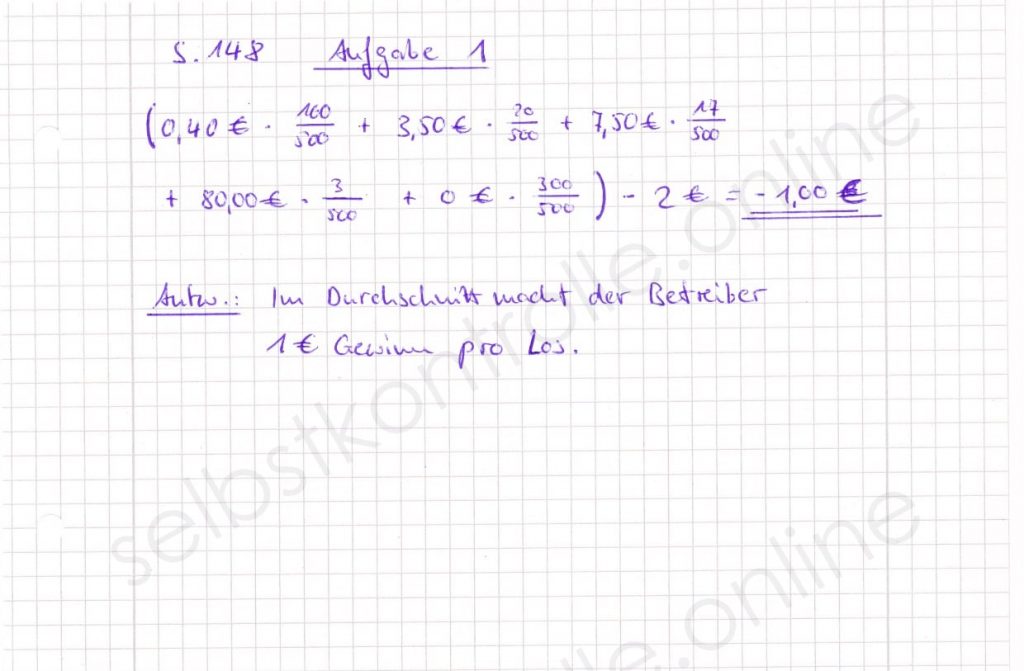 S. 148 Aufgabe 1
(0,40 € · 160/500 + 3,50 € · 20/500 + 7,50 € · 17/500
+ 80,00 € · 3/500 + 0 € · 300/500) - 2 € = - 1,00 €
Antw.: Im Durchschnitt macht der Betreiber
1 € Gewinn pro Los.
selbstkontrolle.online
selbstkontrolle.online